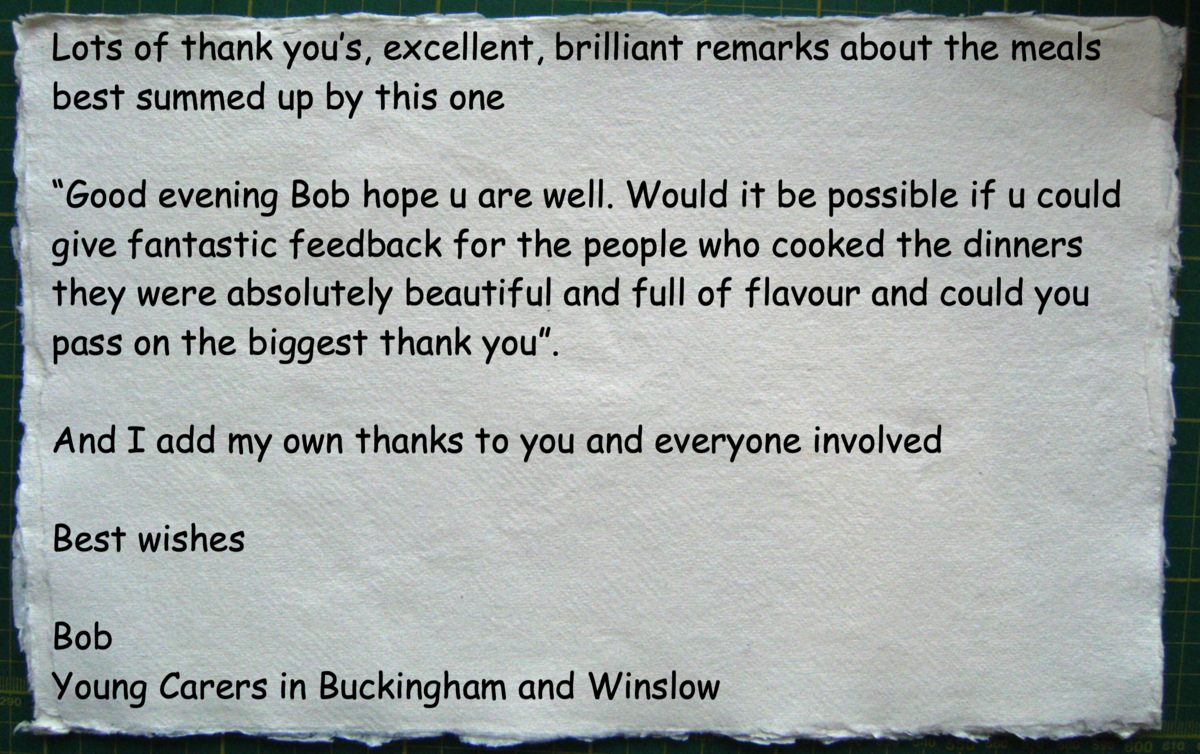 Lots of thank you's, excellent, brilliant remarks about the meals
best summed up by this one
“Good evening Bob hope u are well. Would it be possible if u could
give fantastic feedback for the people who cooked the dinners
they were absolutely beautiful and full of flavour and could you
pass on the biggest thank you”.
And I add my own thanks to you and everyone involved
Best wishes
Bob
Young Carers in Buckingham and Winslow